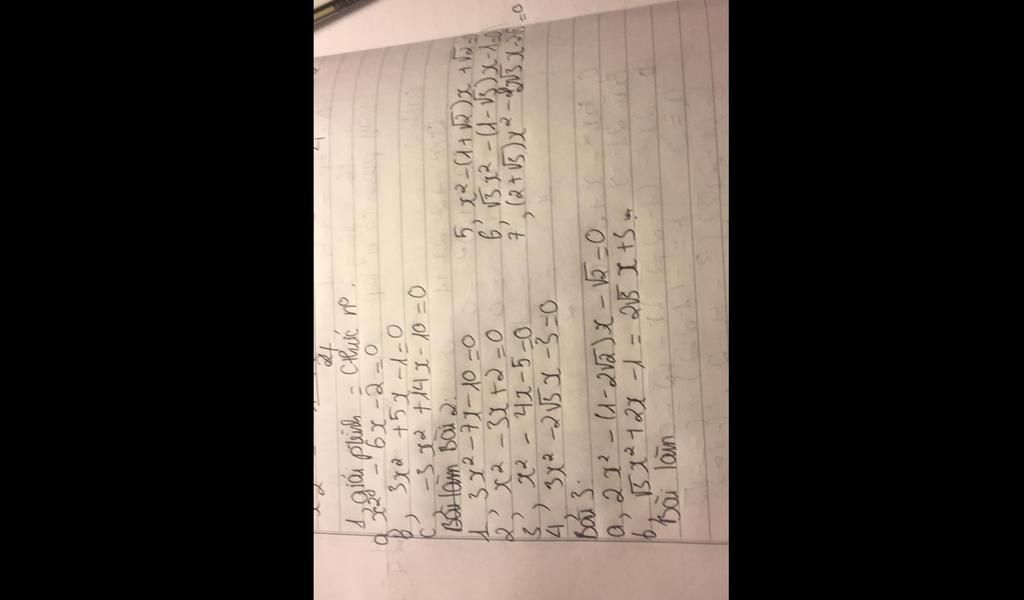 1, giải phtrình = cthức n°.
a, x² - 6x - 2 = 0
b, 3x² + 5x - 1 = 0
c, -3x² + 14x - 10 = 0
Bài làm Bài 2.
1, 3x² - 7x - 10 = 0
2, x² - 3x + 2 = 0
3, x² - 4x - 5 = 0
4, 3x² - 2√3x - 3 = 0
5, x² - (1+√2)x + √2 =
6, √3x² - (1-√3)x - 1 = 0
7, (2+√3)x² - 2√3x - = 0
Bài 3.
a, 2x² - (1-2√2)x - √2 = 0
b, √3x² + 2x - 1 = 2√3x + 3
Bài làm